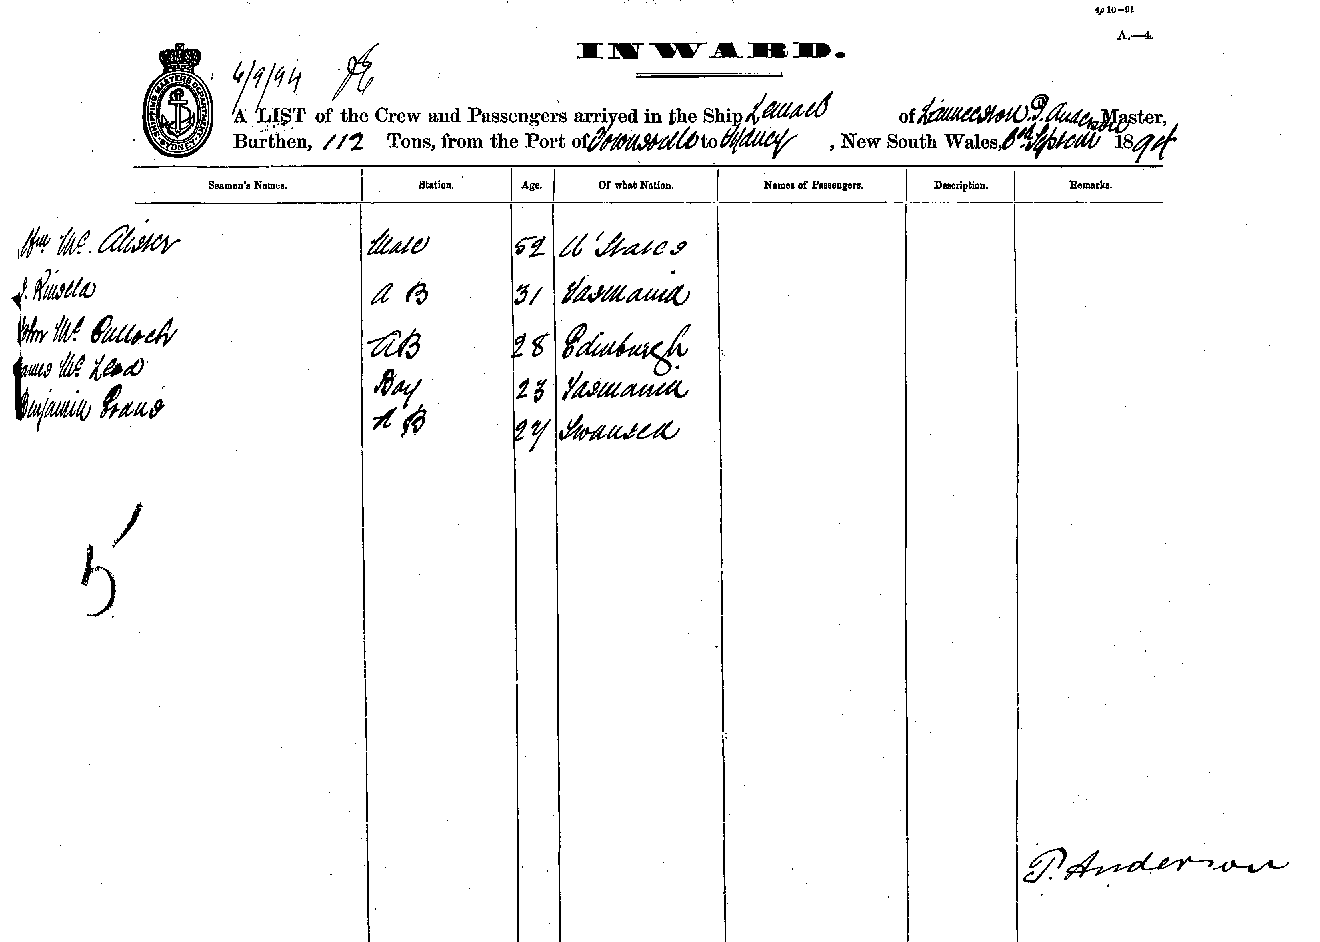 4p 10-91
A.—4.
INWARD.
6/9/94
SHIPPING MASTERS DEPARTMENT SYDNEY
A LIST of the Crew and Passengers arrived in the Ship of Launceston, P. Anderson Master,
Burthen, 112 Tons, from the Port of Townsville to Sydney, New South Wales, Septem 1894
Seamen's Names. Station. Age. Of what Nation. Names of Passengers. Description. Remarks.
Wm Mc. Alister Mate 52 U' States
J. Kinsela A B 31 Tasmania
John Mc Culloch AB 28 Edinburgh
James Mc Leod Boy 23 Tasmania
Benjamin Evans A B 27 Swansea
5
P. Anderson